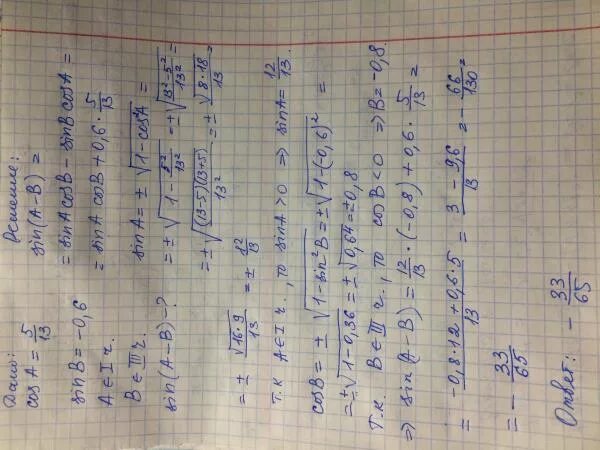 Дано:
cosA = 5/13
sinB = -0,6
A ∈ I ч.
B ∈ III ч.
sin(A-B) - ?
Решение:
sin(A-B) =
= sinA cosB - sinB cosA =
= sinA cosB + 0,6 · 5/13
sinA = ± √(1-cos²A) =
= ± √(1 - 5²/13²) = ± √((13²-5²)/13²) =
= ± √((13-5)(13+5)/13²) = ± √(8·18)/13 =
= ± √(16·9)/13 = ± 12/13
Т.к A ∈ I ч., то sinA > 0 ⇒ sinA = 12/13.
cosB = ± √(1-sin²B) = ± √(1-(-0,6)²) =
= ± √(1-0,36) = ± √0,64 = ± 0,8
Т.к. B ∈ III ч., то cosB < 0 ⇒ B = -0,8.
⇒ sin(A-B) = 12/13 · (-0,8) + 0,6 · 5/13 =
= (-0,8·12 + 0,6·5)/13 = (3 - 9,6)/13 = - 66/130 =
= - 33/65
Ответ: - 33/65